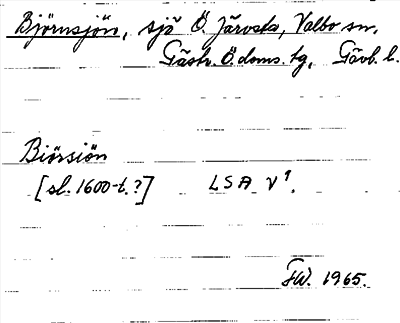 Björnsjön, sjö Ö. Järvsta, Valbo sn.
Gästr. Ö. doms. tg, Gävb. l.
Biörsiön
[sl. 1600-t.?] LSA V¹.
FW. 1965.